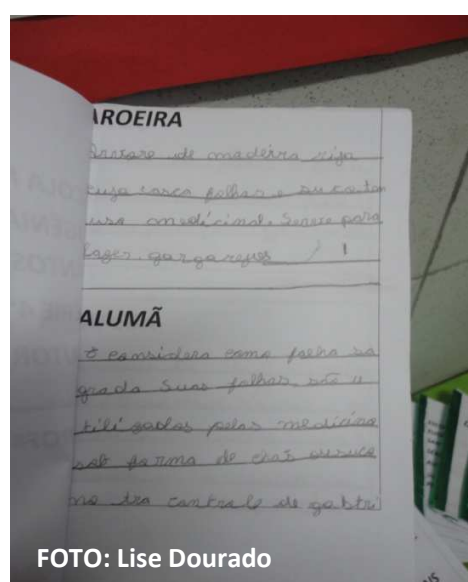 AROEIRA
Arvore de madeira rija
cuja casca folhas e
uso medicinal. Serve para
fazer gargarejos
ALUMÃ
É considera como folha sa
grada Suas folhas são u
tili zadas pelas medicina
sob forma de chás
no controle de gastri
FOTO: Lise Dourado